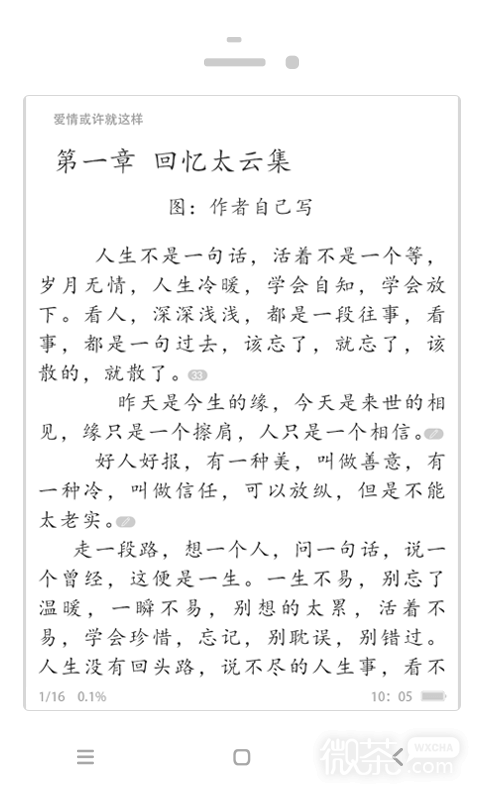 爱情或许就这样
第一章 回忆太云集
图：作者自己写
人生不是一句话，活着不是一个等，
岁月无情，人生冷暖，学会自知，学会放
下。看人，深深浅浅，都是一段往事，看
事，都是一句过去，该忘了，就忘了，该
散的，就散了。33
昨天是今生的缘，今天是来世的相
见，缘只是一个擦肩，人只是一个相信。
好人好报，有一种美，叫做善意，有
一种冷，叫做信任，可以放纵，但是不能
太老实。
走一段路，想一个人，问一句话，说一
个曾经，这便是一生。一生不易，别忘了
温暖，一瞬不易，别想的太累，活着不
易，学会珍惜，忘记，别耽误，别错过。
人生没有回头路，说不尽的人生事，看不
1/16 0.1% 10：05
微茶 WXCHA .com